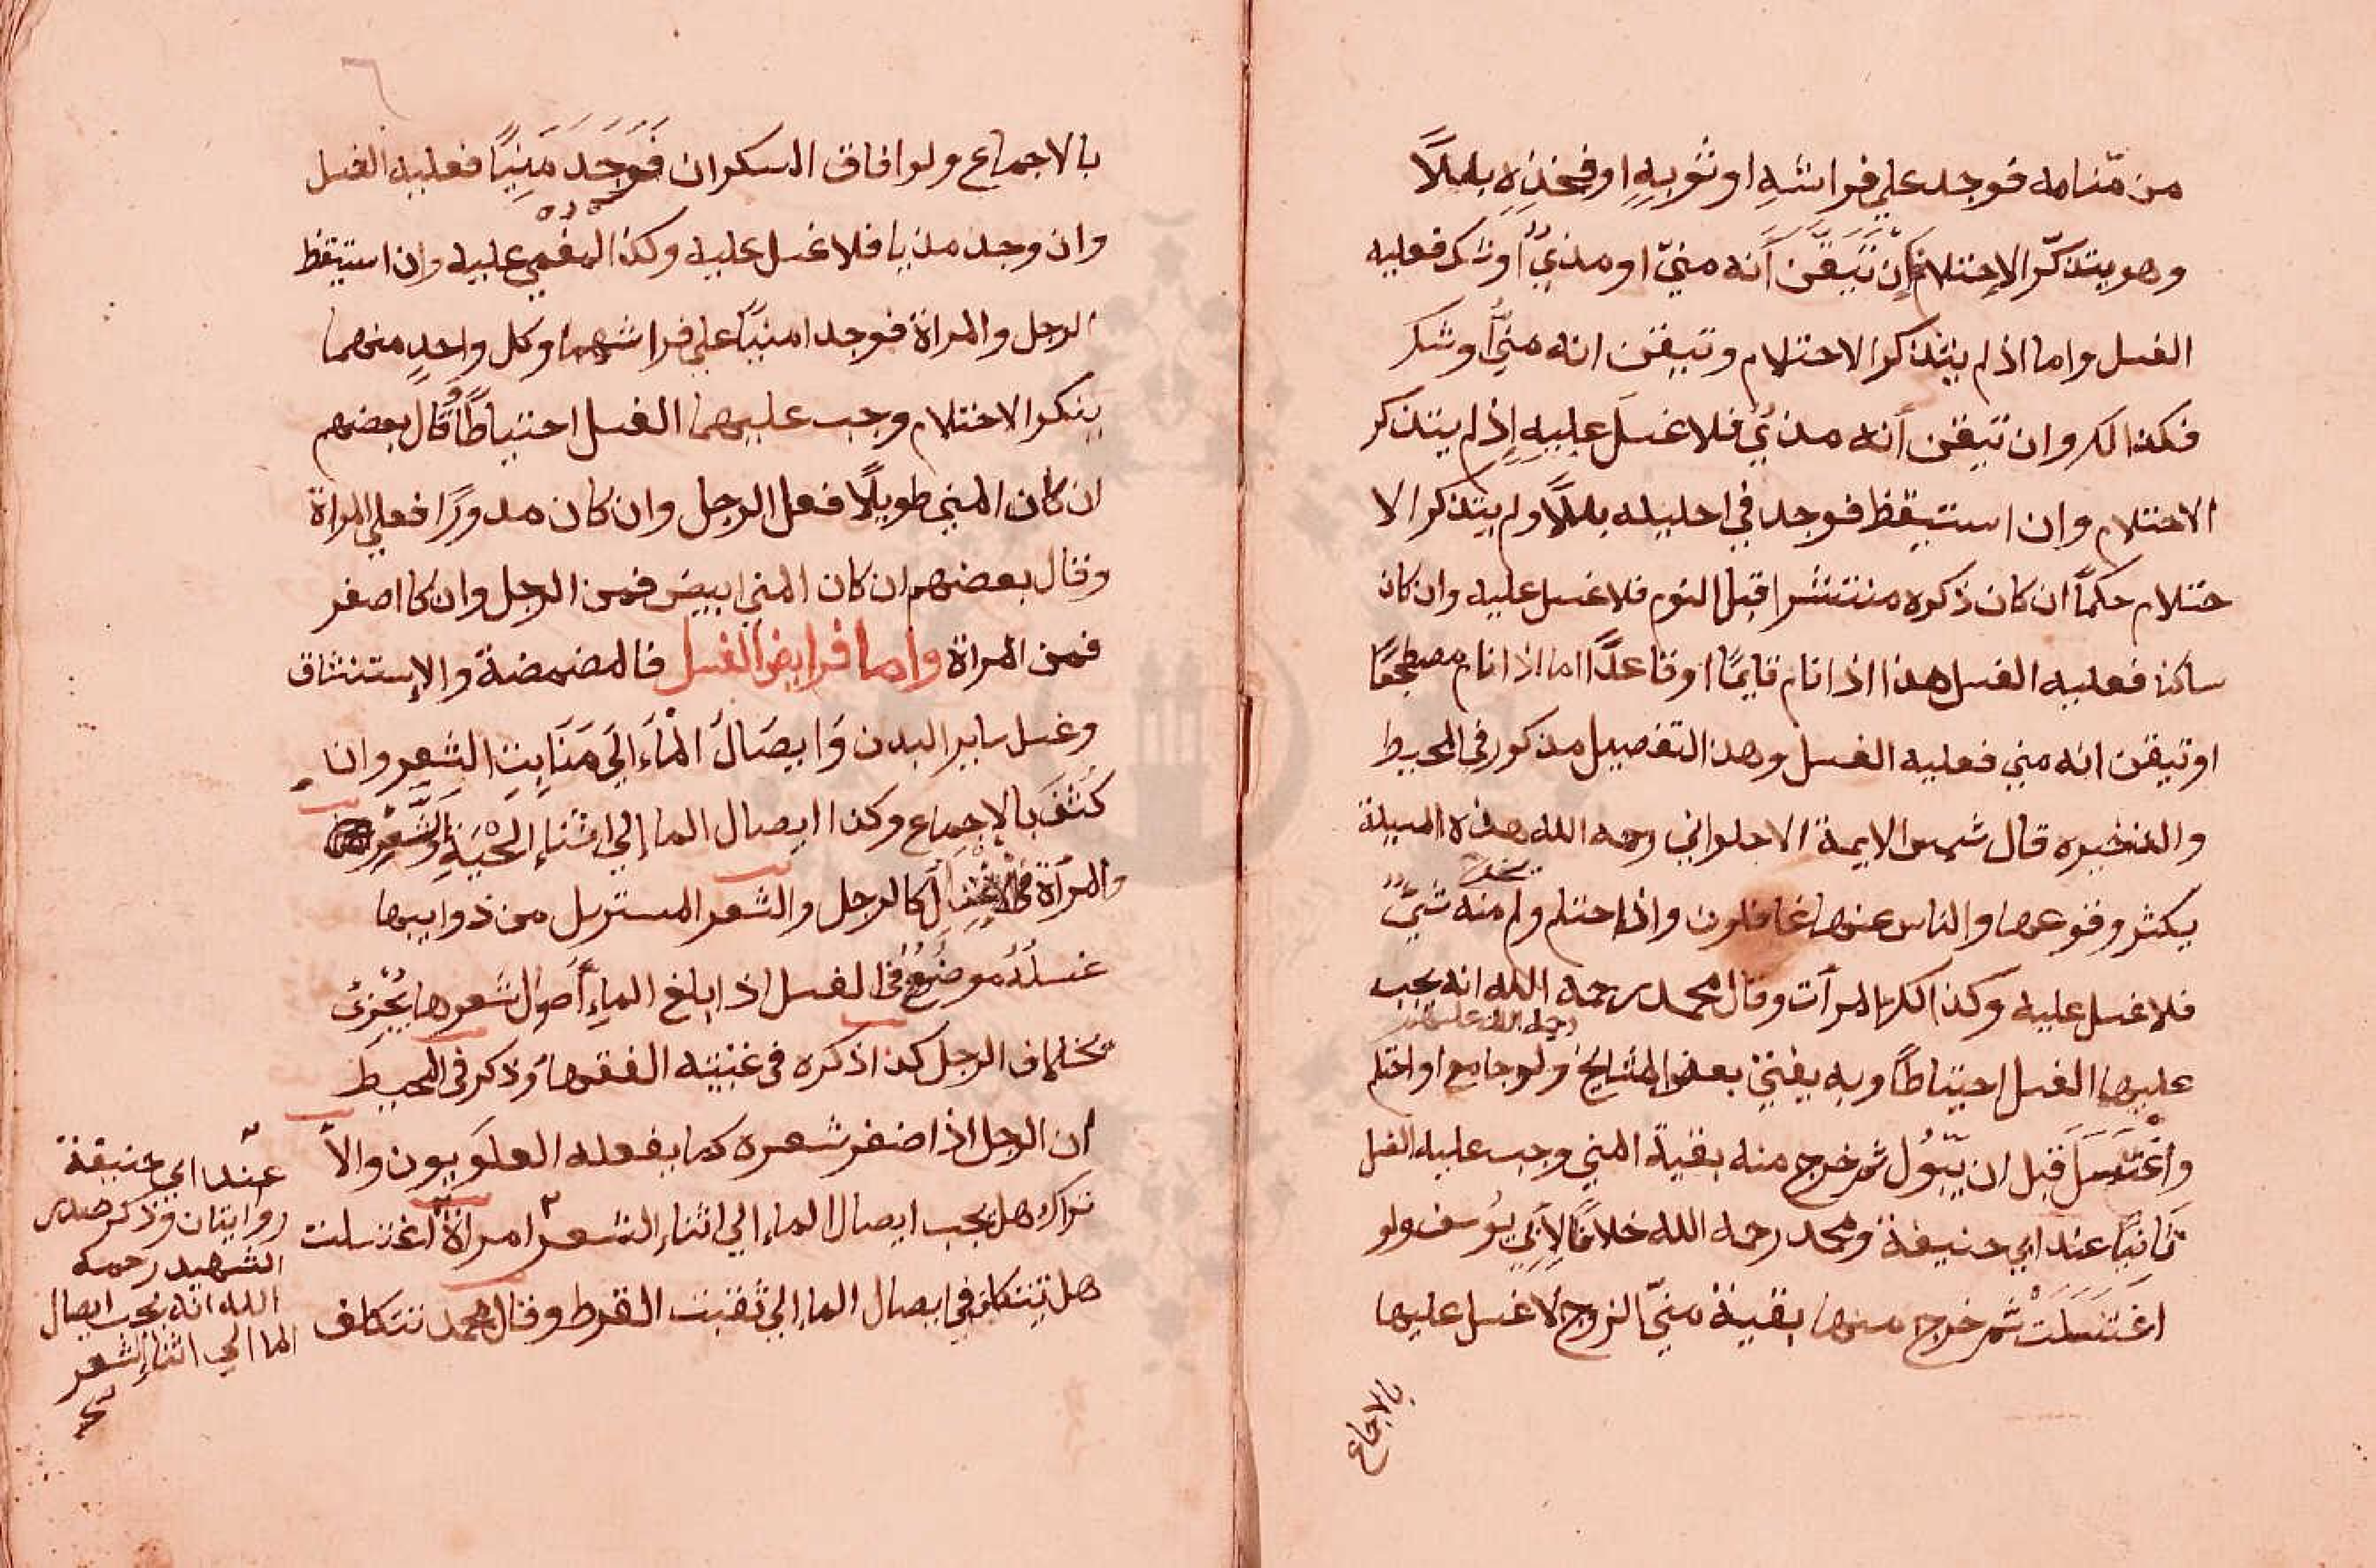 من منامه فوجد علي فراشهِ او ثوبهِ او فخذِه بللاً
وهو يتذكّر الاحتلام فاِن تَيَقَّنَ اَنه منيّ او مذيٌ او شك فعليه
الغسل واما اذ لم يتذكر الاحتلام وتيقن انه منيٌّ او شك
فكذالك وان تيقن اَنه مذيٌ فلا غسلَ عليهِ اِذ لم يتذكر
الاحتلام وان استيقظ فوجد في احليله بللاً ولم يتذكر الا
حتلام حكماً ان كان ذكره منتشرا قبل النوم فلا غسل عليه وان كان
ساكنا فعليه الغسل هذا اذا نام قايمًا او قاعدًا اما اذا نام مضطجعًا
او تيقن انه مني فعليه الغسل وهذ التفصيل مذكور في المحيط
والذخيره قال شمس الايمة الاحلواني رحمه الله هذه المسيلة
يكثر وقوعها والناس عنها غافلون واذا احتلم ولم منه شيٌ
فلا غسل عليه وكذالك المرأت وقال محمد رحمة الله انه يجب
عليها الغسل احتياطًا وبه يفتيْ بعض المشايخ ولو جامع او احتلم
واغْتَسَلَ قبل ان يَبُول ثم خرج منه بقية المني وجب عليه الغسل
ثانيًا عند ابي حنيفة ومحمد رحمه الله خلافًا لِاَبي يوُسف ولو
اغتَسَلَتْ ثم خرج منها بقية منيّ الزوج لا غسل عليها
بالاجماع
بالاجماع ولو افاق السكران فَوَجَدَ مَنِيًا فعليه الغسل
وان وجد مذيا فلا غسل عليه وكذ المغمي عليه وان استيقظ
الرجل والمراة فوجدا منيًا علي فراشهما وكل واحدٍ منهما
ينكر الاحتلام وجب عليهما الغسل احتياطًا وقَال بعضهم
ان كان المني طويلًا فعل الرجل وان كان مدورًا فعلي المراة
وقال بعضهم ان كان المني ابيض فمن الرجل وان كا اصفر
فمن المراة واما فرايض الغسل فالمضمضة والاستنشاق
وغسل ساير البدن وَايصَالُ الْماَء اليَ مَنَابِتِ الشعرِ وان
كثفَ بالاِجماع وكذا ايصال الما اِلي اثناءِ الحْيَةِ والشَّعِْرِ
والمراَة في الاغتِسِال كالرجل والشعر المسترسل من ذوايبها
غسلُهُ موضُوعٌ في الغسل اذا بلغ الماءِ اُصول شَعرها يُجْزئ
بخلاف الرجل كذا ذكره في غنية الفقهاء وذكر في المحيط
ان الرجل اذا ضفر شعره كما يفعله العلَويون والا
تراك هل يجب ايصال الماء الي اثناء الشعر امراة اغتسلت
هل تتكلف في ايصال الما الي ثقبت القرط وقال محمد تتكلف
عند ابي حنيفة
روايتان وذكر صدر
الشهيد رحمه
الله انه يجب ايصال
الما الي اثناء الشعر
صح